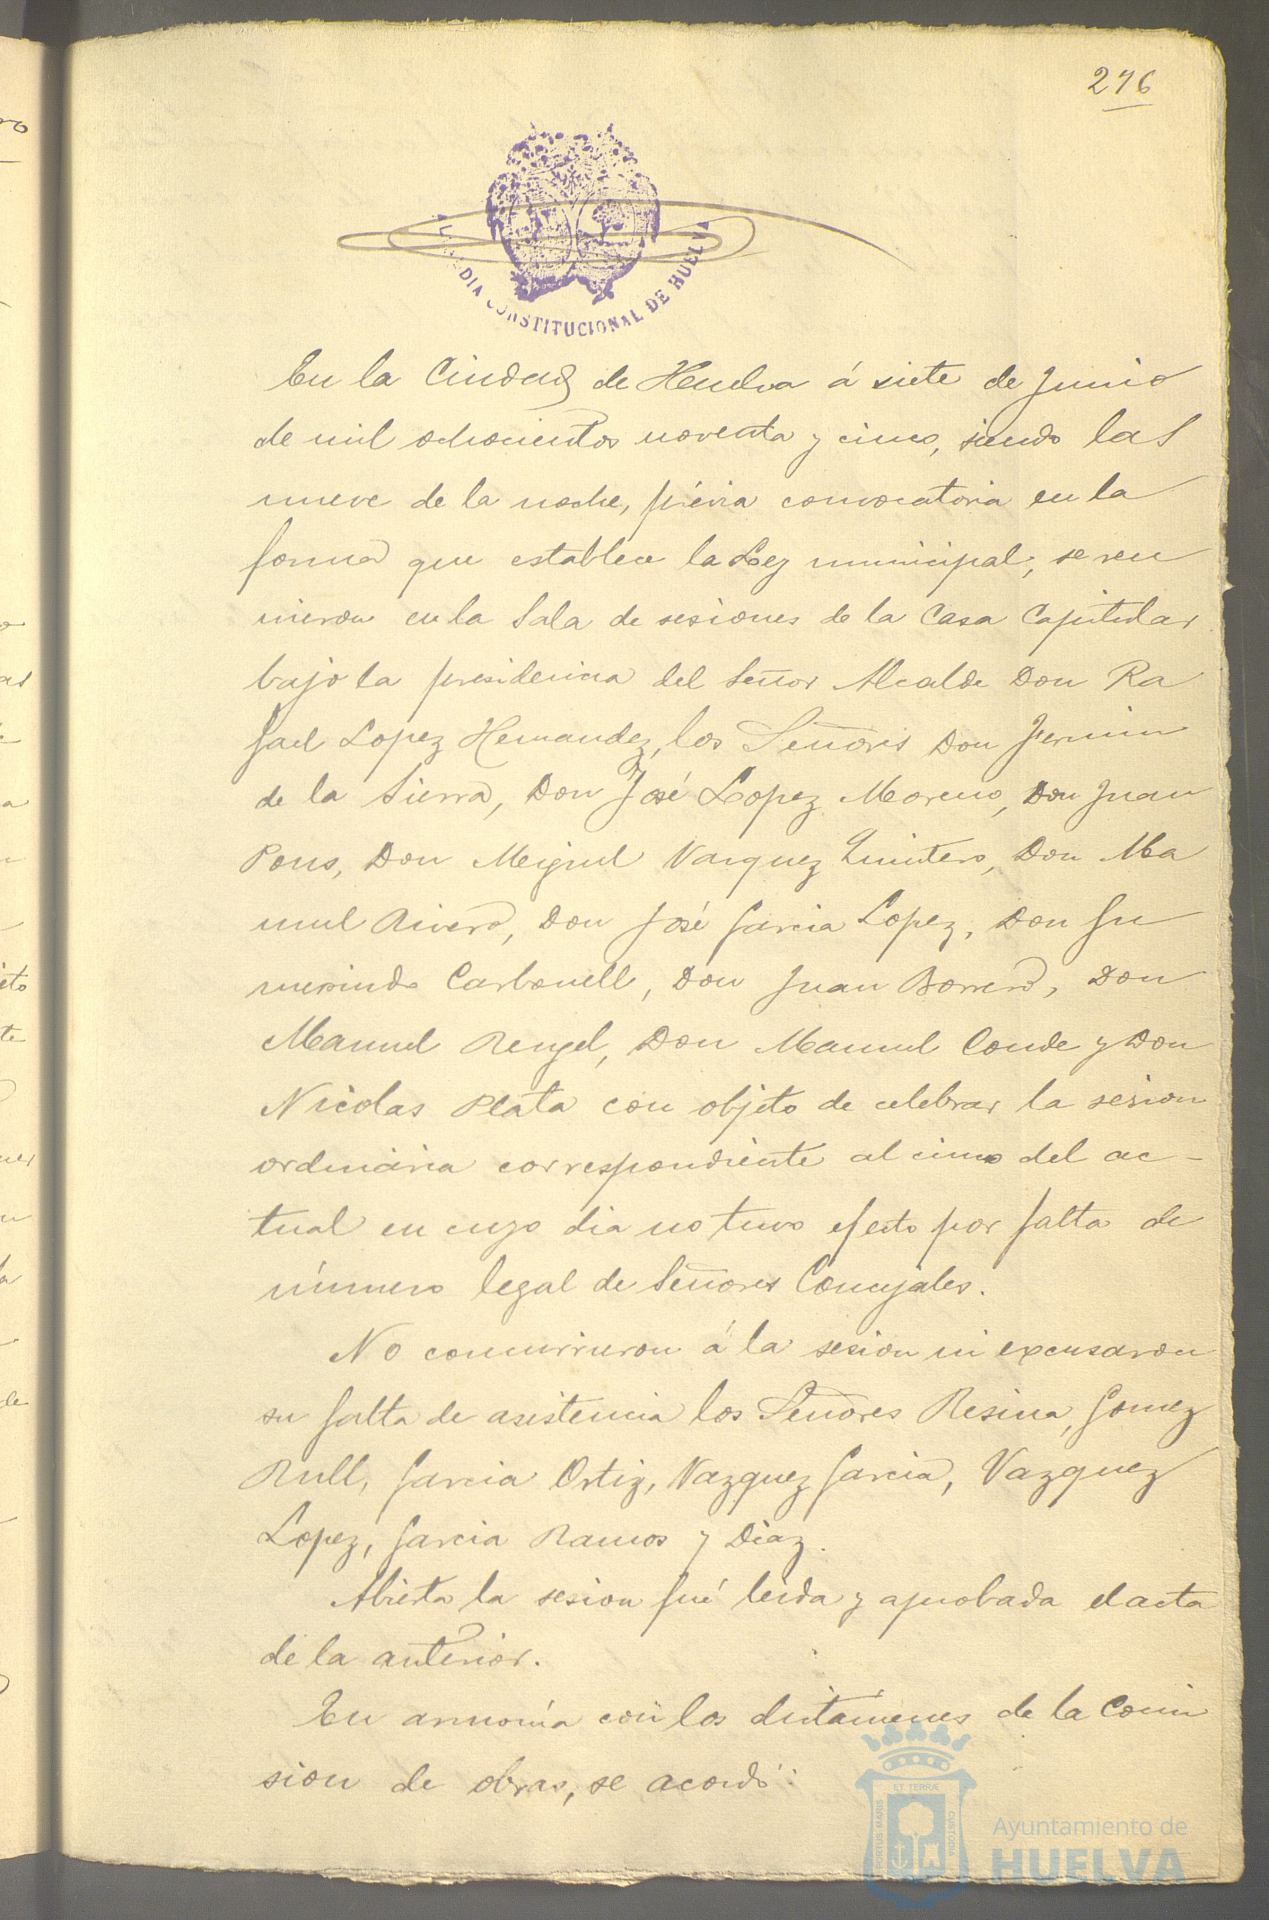 276
ALCALDIA CONSTITUCIONAL DE HUELVA
En la Ciudad de Huelva á siete de Junio
de mil ochocientos noventa y cinco, siendo las
nueve de la noche, prévia convocatoria en la
forma que establece la Ley municipal, se reu
nieron en la Sala de sesiones de la Casa Capitular
bajo la presidencia del Señor Alcalde Don Ra
fael Lopez Hernandez, los Señores Don Fermin
de la Sierra, Don José Lopez Moreno, Don Juan
Pons, Don Miguel Vazquez Quintero, Don Ma
nuel Rivero, Don José Garcia Lopez, Don Gu
mersindo Carbonell, Don Juan Borrero, Don
Manuel Rengel, Don Manuel Conde y Don
Nicolas Plata con objeto de celebrar la sesion
ordinaria correspondiente al cinco del ac-
tual en cuyo dia no tuvo efecto por falta de
número legal de Señores Concejales.
No concurrieron á la sesion ni excusaron
su falta de asistencia los Señores Resina, Gomez
Rull, Garcia Ortiz, Vazquez Garcia, Vazquez
Lopez, Garcia Ramos y Diaz.
Abierta la sesion fué leida y aprobada el acta
de la anterior.
En armonía con los dictámenes de la Comi
sion de obras, se acordó:
PORTUS MARIS ET TERRÆ CUSTODIA
Ayuntamiento de
HUELVA